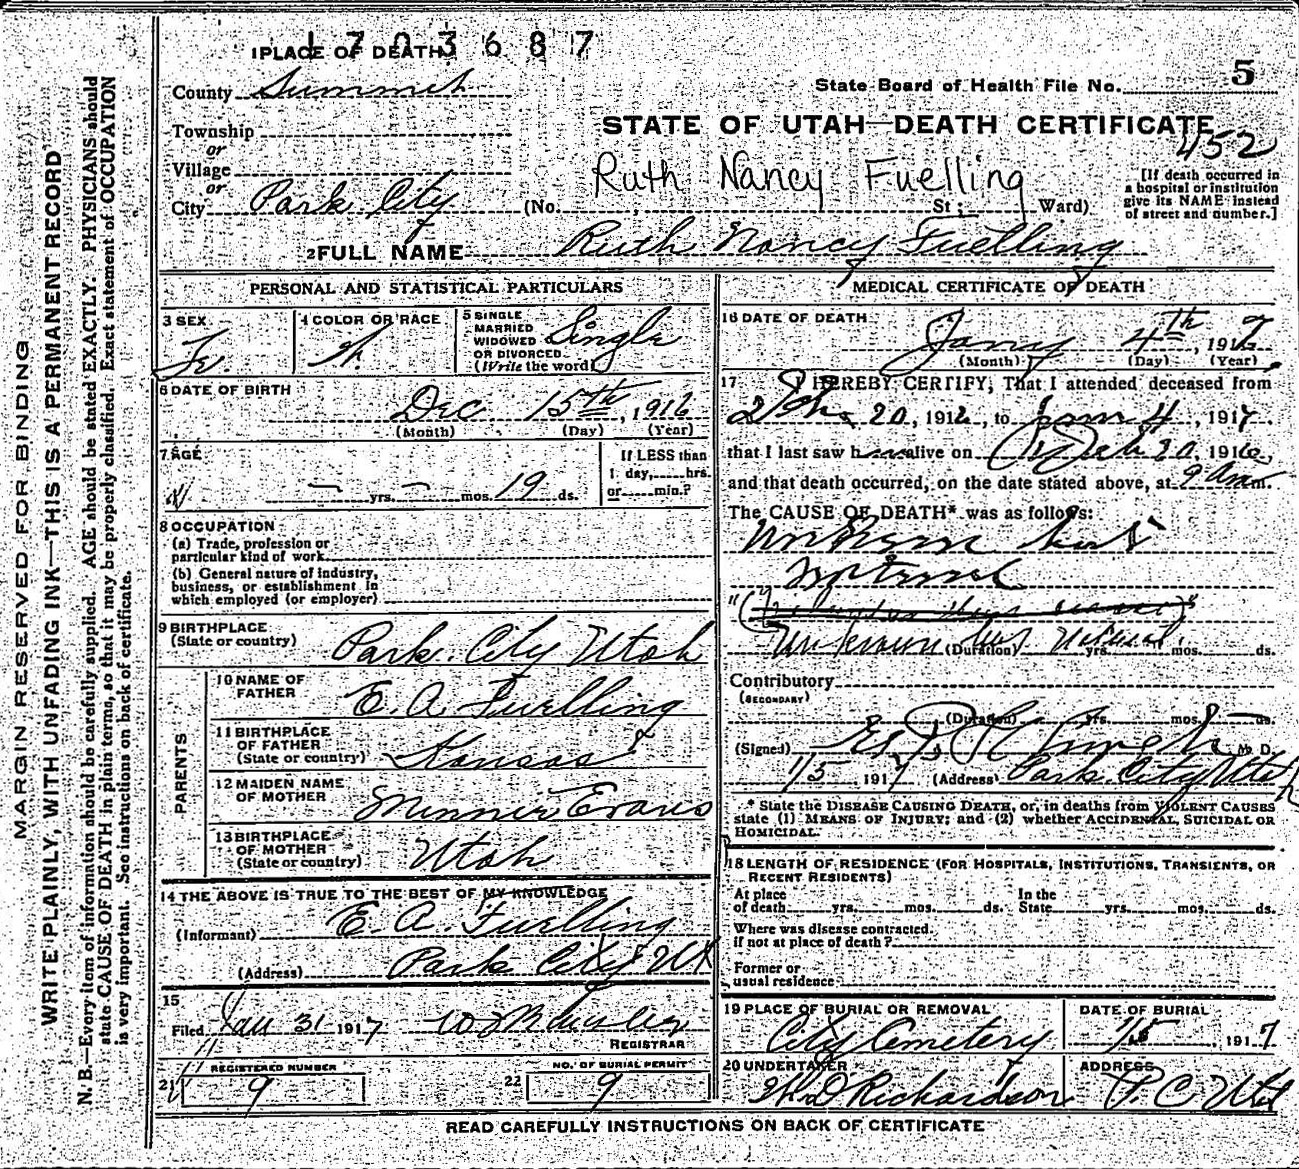 1 7 0 3 6 8 7
1 PLACE OF DEATH
County Summit
State Board of Health File No. 5
Township
or
Village
or
City Park City
STATE OF UTAH—DEATH CERTIFICATE
452
Ruth Nancy Fuelling
(No. St; Ward)
[If death occurred in
a hospital or institution
give its NAME instead
of street and number.]
2 FULL NAME Ruth Nancy Fuelling
MARGIN RESERVED FOR BINDING
WRITE PLAINLY, WITH UNFADING INK—THIS IS A PERMANENT RECORD
N. B.—Every item of information should be carefully supplied. AGE should be stated EXACTLY. PHYSICIANS should
state CAUSE OF DEATH in plain terms, so that it may be properly classified. Exact statement of OCCUPATION
is very important. See instructions on back of certificate.
PERSONAL AND STATISTICAL PARTICULARS
3 SEX Fe.
4 COLOR OR RACE W.
5 SINGLE
MARRIED
WIDOWED
OR DIVORCED
(Write the word) Single
6 DATE OF BIRTH
Dec 15th, 1916
(Month) (Day) (Year)
7 AGE
— yrs. — mos. 19 ds.
If LESS than
1 day, hrs.
or min.?
8 OCCUPATION
(a) Trade, profession or
particular kind of work
(b) General nature of industry,
business, or establishment in
which employed (or employer)
9 BIRTHPLACE
(State or country) Park City Utah
PARENTS
10 NAME OF
FATHER E. A. Fuelling
11 BIRTHPLACE
OF FATHER
(State or country) Kansas
12 MAIDEN NAME
OF MOTHER Evans
13 BIRTHPLACE
OF MOTHER
(State or country) Utah
14 THE ABOVE IS TRUE TO THE BEST OF MY KNOWLEDGE
(Informant) E. A. Fuelling
(Address) Park City Ut
15
Filed Jan 31 1917
REGISTRAR
REGISTERED NUMBER
21 9
NO. OF BURIAL PERMIT
22 9
MEDICAL CERTIFICATE OF DEATH
16 DATE OF DEATH
Jany 4th, 1917
(Month) (Day) (Year)
17 I HEREBY CERTIFY, That I attended deceased from
20, 1916, to Jan 4, 1917,
that I last saw h alive on 1916,
and that death occurred, on the date stated above, at 9 am.
The CAUSE OF DEATH* was as follows:
Unknown but
(Duration) yrs. mos. ds.
Contributory
(SECONDARY)
(Duration) yrs. mos. ds.
(Signed) M. D.
1/5, 1917 (Address) Park City Utah
* State the DISEASE CAUSING DEATH, or, in deaths from VIOLENT CAUSES
state (1) MEANS OF INJURY; and (2) whether ACCIDENTAL, SUICIDAL OR
HOMICIDAL.
18 LENGTH OF RESIDENCE (FOR HOSPITALS, INSTITUTIONS, TRANSIENTS, OR
RECENT RESIDENTS)
At place
of death yrs. mos. ds.
In the
State yrs. mos. ds.
Where was disease contracted.
if not at place of death?
Former or
usual residence
19 PLACE OF BURIAL OR REMOVAL
City Cemetery
DATE OF BURIAL
1/5, 1917
20 UNDERTAKER
W. D. Richardson
ADDRESS
P. C. Utah
READ CAREFULLY INSTRUCTIONS ON BACK OF CERTIFICATE